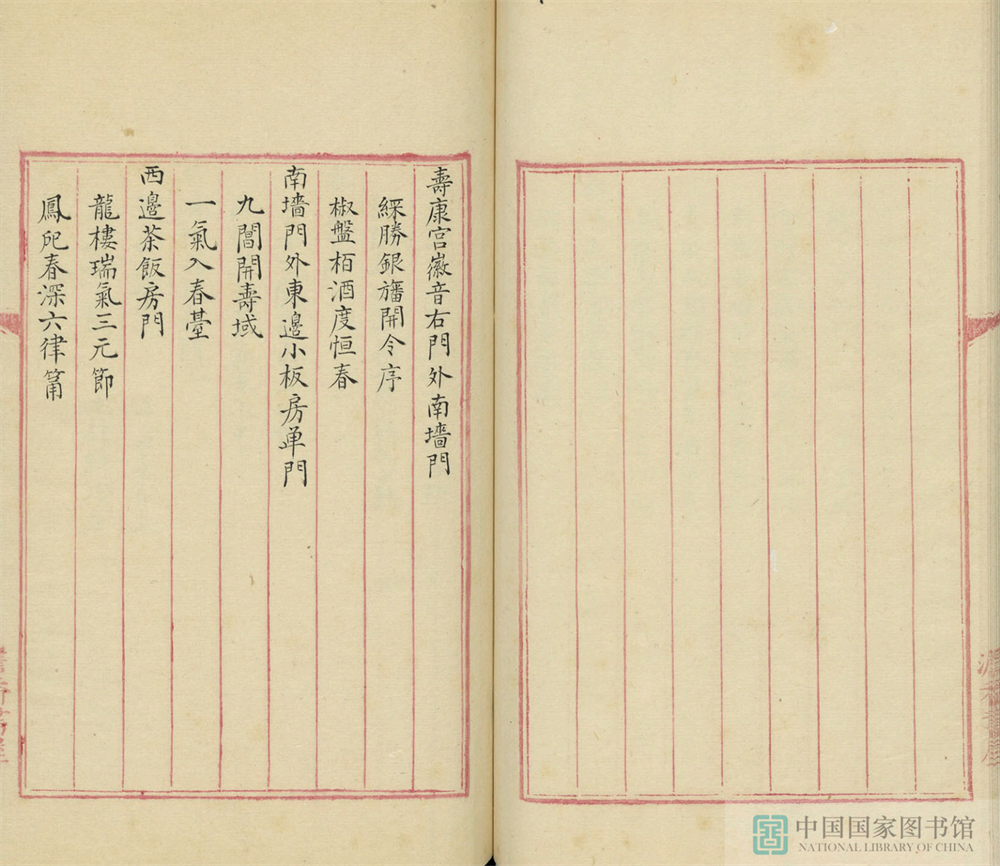 壽康宮徽音右門外南墻門
綵勝銀旛開令序
椒盤栢酒度恒春
南墻門外東邊小板房单門
九閶開壽域
一氣入春臺
西邊茶飯房門
龍樓瑞氣三元節
鳳紀春深六律筩
中国国家图书馆
NATIONAL LIBRARY OF CHINA